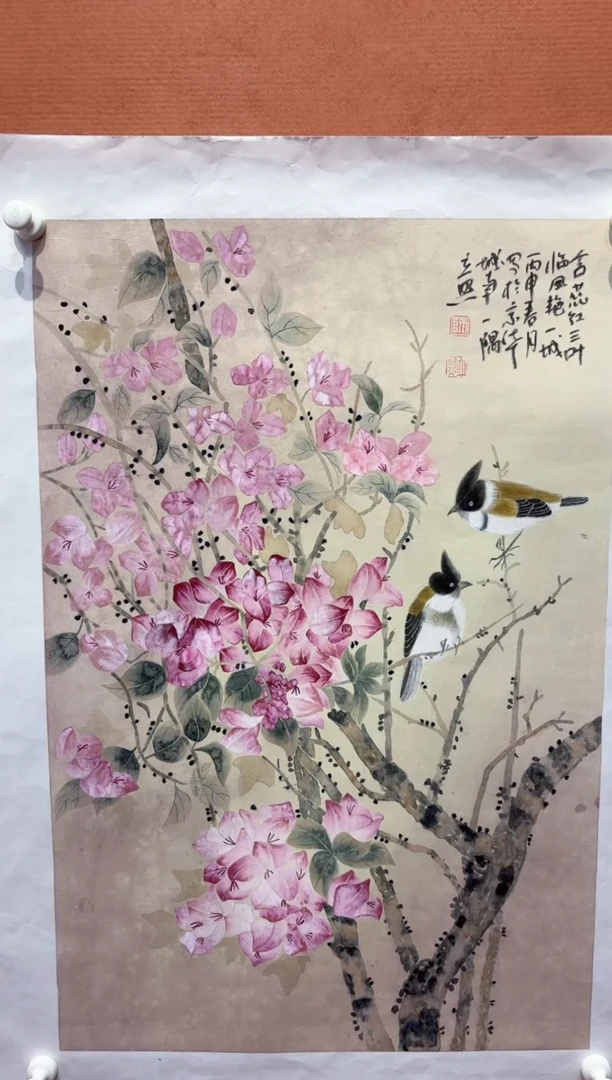 含蕊红三叶
临风艳一城
丙申春月
写于京华
城南一隅
立照